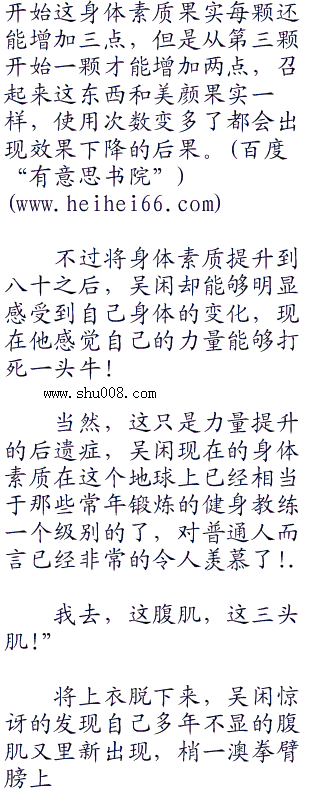 开始这身体素质果实每颗还
能增加三点，但是从第三颗
开始一颗才能增加两点，召
起来这东西和美颜果实一
样，使用次数变多了都会出
现效果下降的后果。(百度
“有意思书院”)
(www.heihei66.com)
不过将身体素质提升到
八十之后，吴闲却能够明显
感受到自己身体的变化，现
在他感觉自己的力量能够打
死一头牛！
www.shu008.com
当然，这只是力量提升
的后遗症，吴闲现在的身体
素质在这个地球上已经相当
于那些常年锻炼的健身教练
一个级别的了，对普通人而
言已经非常的令人羡慕了！.
我去，这腹肌，这三头
肌！”
将上衣脱下来，吴闲惊
讶的发现自己多年不显的腹
肌又里新出现，梢一澳拳臂
膀上